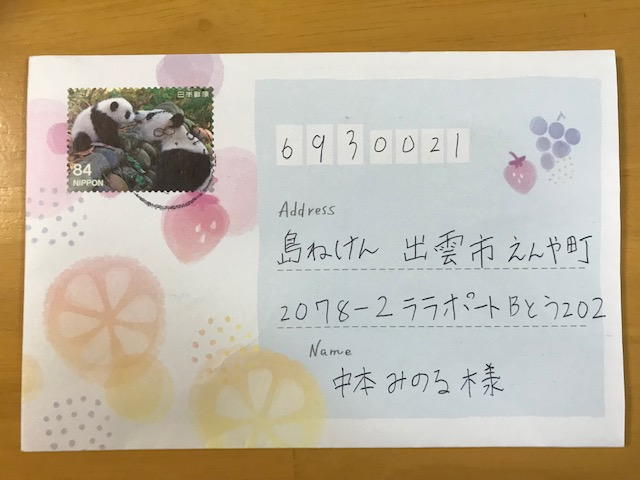 日本郵便
84
NIPPON
6930021
Address
島ねけん 出雲市えんや町
2078-2 ララポートBとう202
Name
中本みのる様